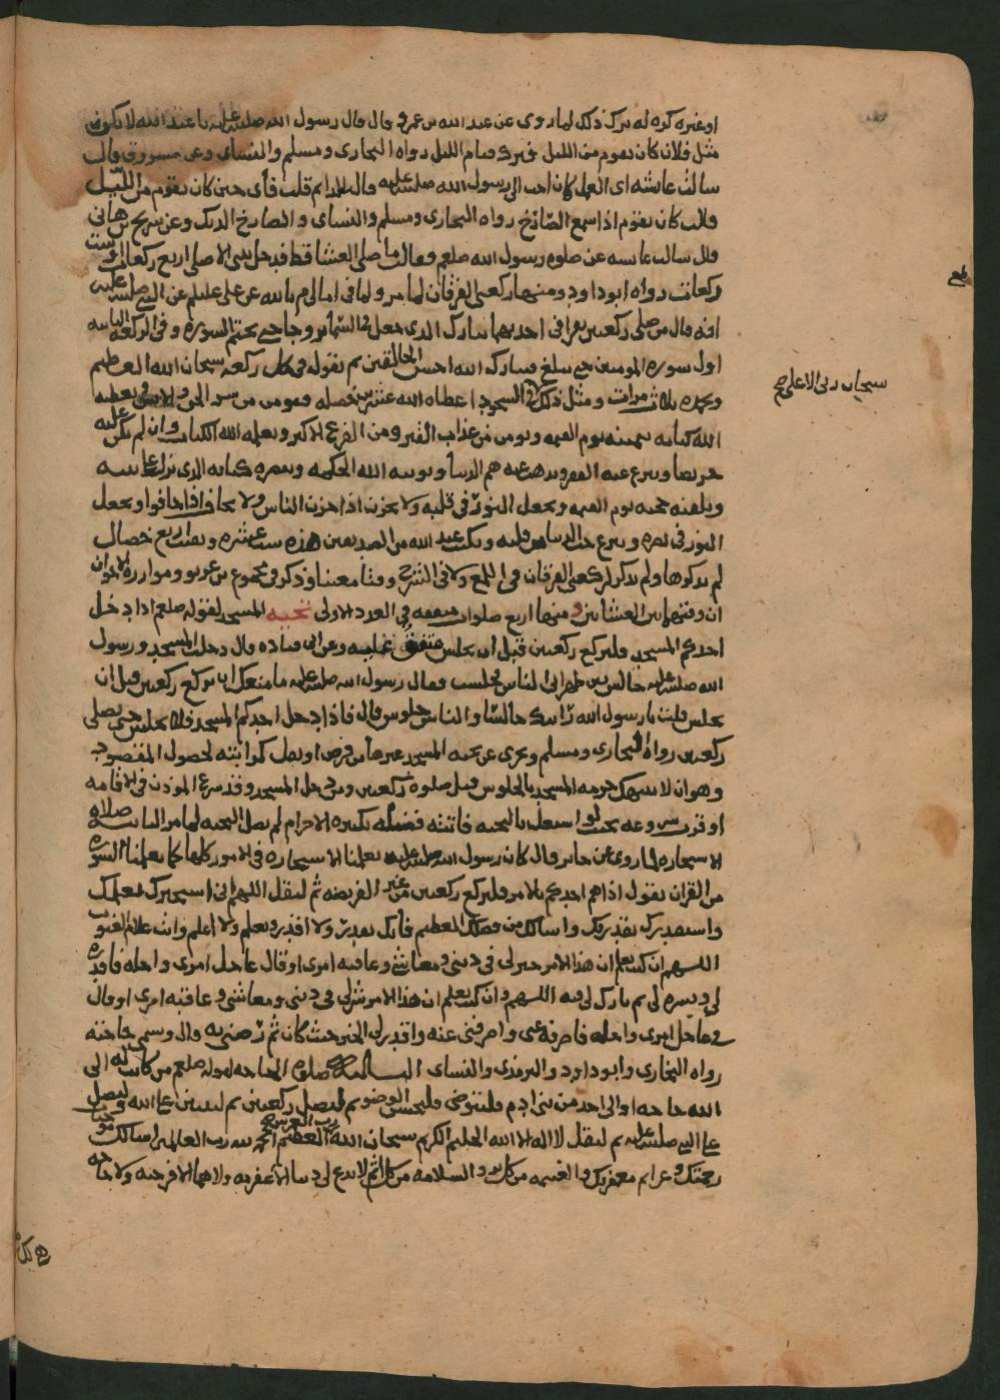 او غيره كره له ترك ذلك لما روى عن عبد الله بن عمرو قال قال رسول الله صلى الله عليه يا عبد الله لا تكون
مثل فلان كان يقوم من الليل فترك قيام الليل رواه البخارى ومسلم والنساى وعن مسروق قال
سالت عائشه اى العمل كان احب الى رسول الله صلى الله عليه قالت الدايم قلت فاى حين كان يقوم من الليل
قالت كان يقوم اذا سمع الصارخ رواه البخارى ومسلم والنساى و الصارخ الديك وعن شريح بن هانى
قال سالت عايشه عن صلوه رسول الله صلعم فقالت ما صلى العشا قط فدخل بيتى الا صلى اربع ركعات او ست
ركعات رواه ابو داود ومنها ركعتى الفرقان لما مر ولما فى امالى م بالله عن على عليلم عن النبى صلى الله عليه
انه قال من صلى ركعتين يقرا فى احديهما تبارك الذى جعل فى السما بروجا حتى يختم السوره و فى الركعه الثانيه
اول سوره المومنين حتى يبلغ فتبارك الله احسن الخالقين ثم يقول فى كل ركعه سبحان الله العظيم
وبحمده ثلاث مرات ومثل ذلك فى السجود اعطاه الله عشرين خصله يومن من شر الجن والانس ويعطيه
الله كتابه بيمينه يوم القيمه ويومن من عذاب القبر ومن الفزع الاكبر ويعلمه الله الكتاب وان لم يكن عليه
حريصا وينزع عنه الفقر ويذهب عنه هم الدنيا ويوتيه الله الحكمه ويبصره كتابه الذى نزل على نبيه
ويلقنه حجته يوم القيمه ويجعل النور فى قلبه ولا يحزن اذا حزن الناس ولا يخاف اذا خافوا ويجعل
النور فى بصره وينزع حب الدنيا من قلبه ويكتب عند الله من الصديقين هذه ست عشره وبقيت اربع خصال
لم يذكروها ولم يذكر ركعتى الفرقان فى اللمع ولا فى الشرح
ان وقتها بين العشاين ومنها اربع صلوات متفقه فى العدد الاولى تحيه المسجد لقوله صلعم اذا دخل
احدكم المسجد فليركع ركعتين قبل ان يجلس متفق عليه وعن ابى قتاده قال دخلت المسجد ورسول
الله صلى الله عليه جالس بين ظهرانى الناس فجلست فقال رسول الله صلى الله عليه ما منعك ان تركع ركعتين قبل ان
تجلس قلت يا رسول الله رايتك جالسا والناس جلوس قال فاذا دخل احدكم المسجد فلا يجلس حتى يصلى
ركعتين رواه البخارى ومسلم ويجزى عن تحيه المسجد غيرها من فرض او نفل كراتبته لحصول المقصود
وهو ان لا ينتهك حرمه المسجد بالجلوس قبل صلوه ركعتين ومن دخل المسجد وقد شرع الموذن فى الاقامه
او قرب شروعه بحيث لو اشتغل بالتحيه فاتته فضيله تكبيره الاحرام لم يصل التحيه لما مر الثانيه صلاه
الاستخاره لما روى عن جابر قال كان رسول الله صلى الله عليه يعلمنا الاستخاره فى الامور كلها كما يعلمنا السوره
من القران يقول اذا هم احدكم بالامر فليركع ركعتين من غير الفريضه ثم ليقل اللهم انى استخيرك بعلمك
واستقدرك بقدرتك واسالك من فضلك العظيم فانك تقدر ولا اقدر وتعلم ولا اعلم وانت علام الغيوب
اللهم ان كنت تعلم ان هذا الامر خير لى فى دينى ومعاشى وعاقبه امرى او قال عاجل امرى واجله فاقدره
لى ويسره لى ثم بارك لى فيه اللهم وان كنت تعلم ان هذا الامر شر لى فى دينى ومعاشى وعاقبه امرى او قال
فى عاجل امرى واجله فاصرفه عنى واصرفنى عنه واقدر لى الخير حيث كان ثم رضنى به قال ويسمى حاجته
رواه البخارى وابو داود والترمذى والنساى الثالثه صلوه الحاجه لقوله صلعم من كانت له الى
الله حاجه او الى احد من بنى ادم فليتوضى فليحسن الوضو ثم ليصل ركعتين ثم ليثنى على الله وليصل
على النبى صلى الله عليه ثم ليقل لا اله الا الله الحليم الكريم سبحان الله رب العرش العظيم الحمد لله رب العالمين اسالك موجبات
رحمتك وعزايم مغفرتك والغنيمه من كل بر والسلامه من كل اثم لا تدع لى ذنبا الا غفرته ولا هما الا فرجته ولا حاجه
سبحان ربى الاعلى صح
هى لك